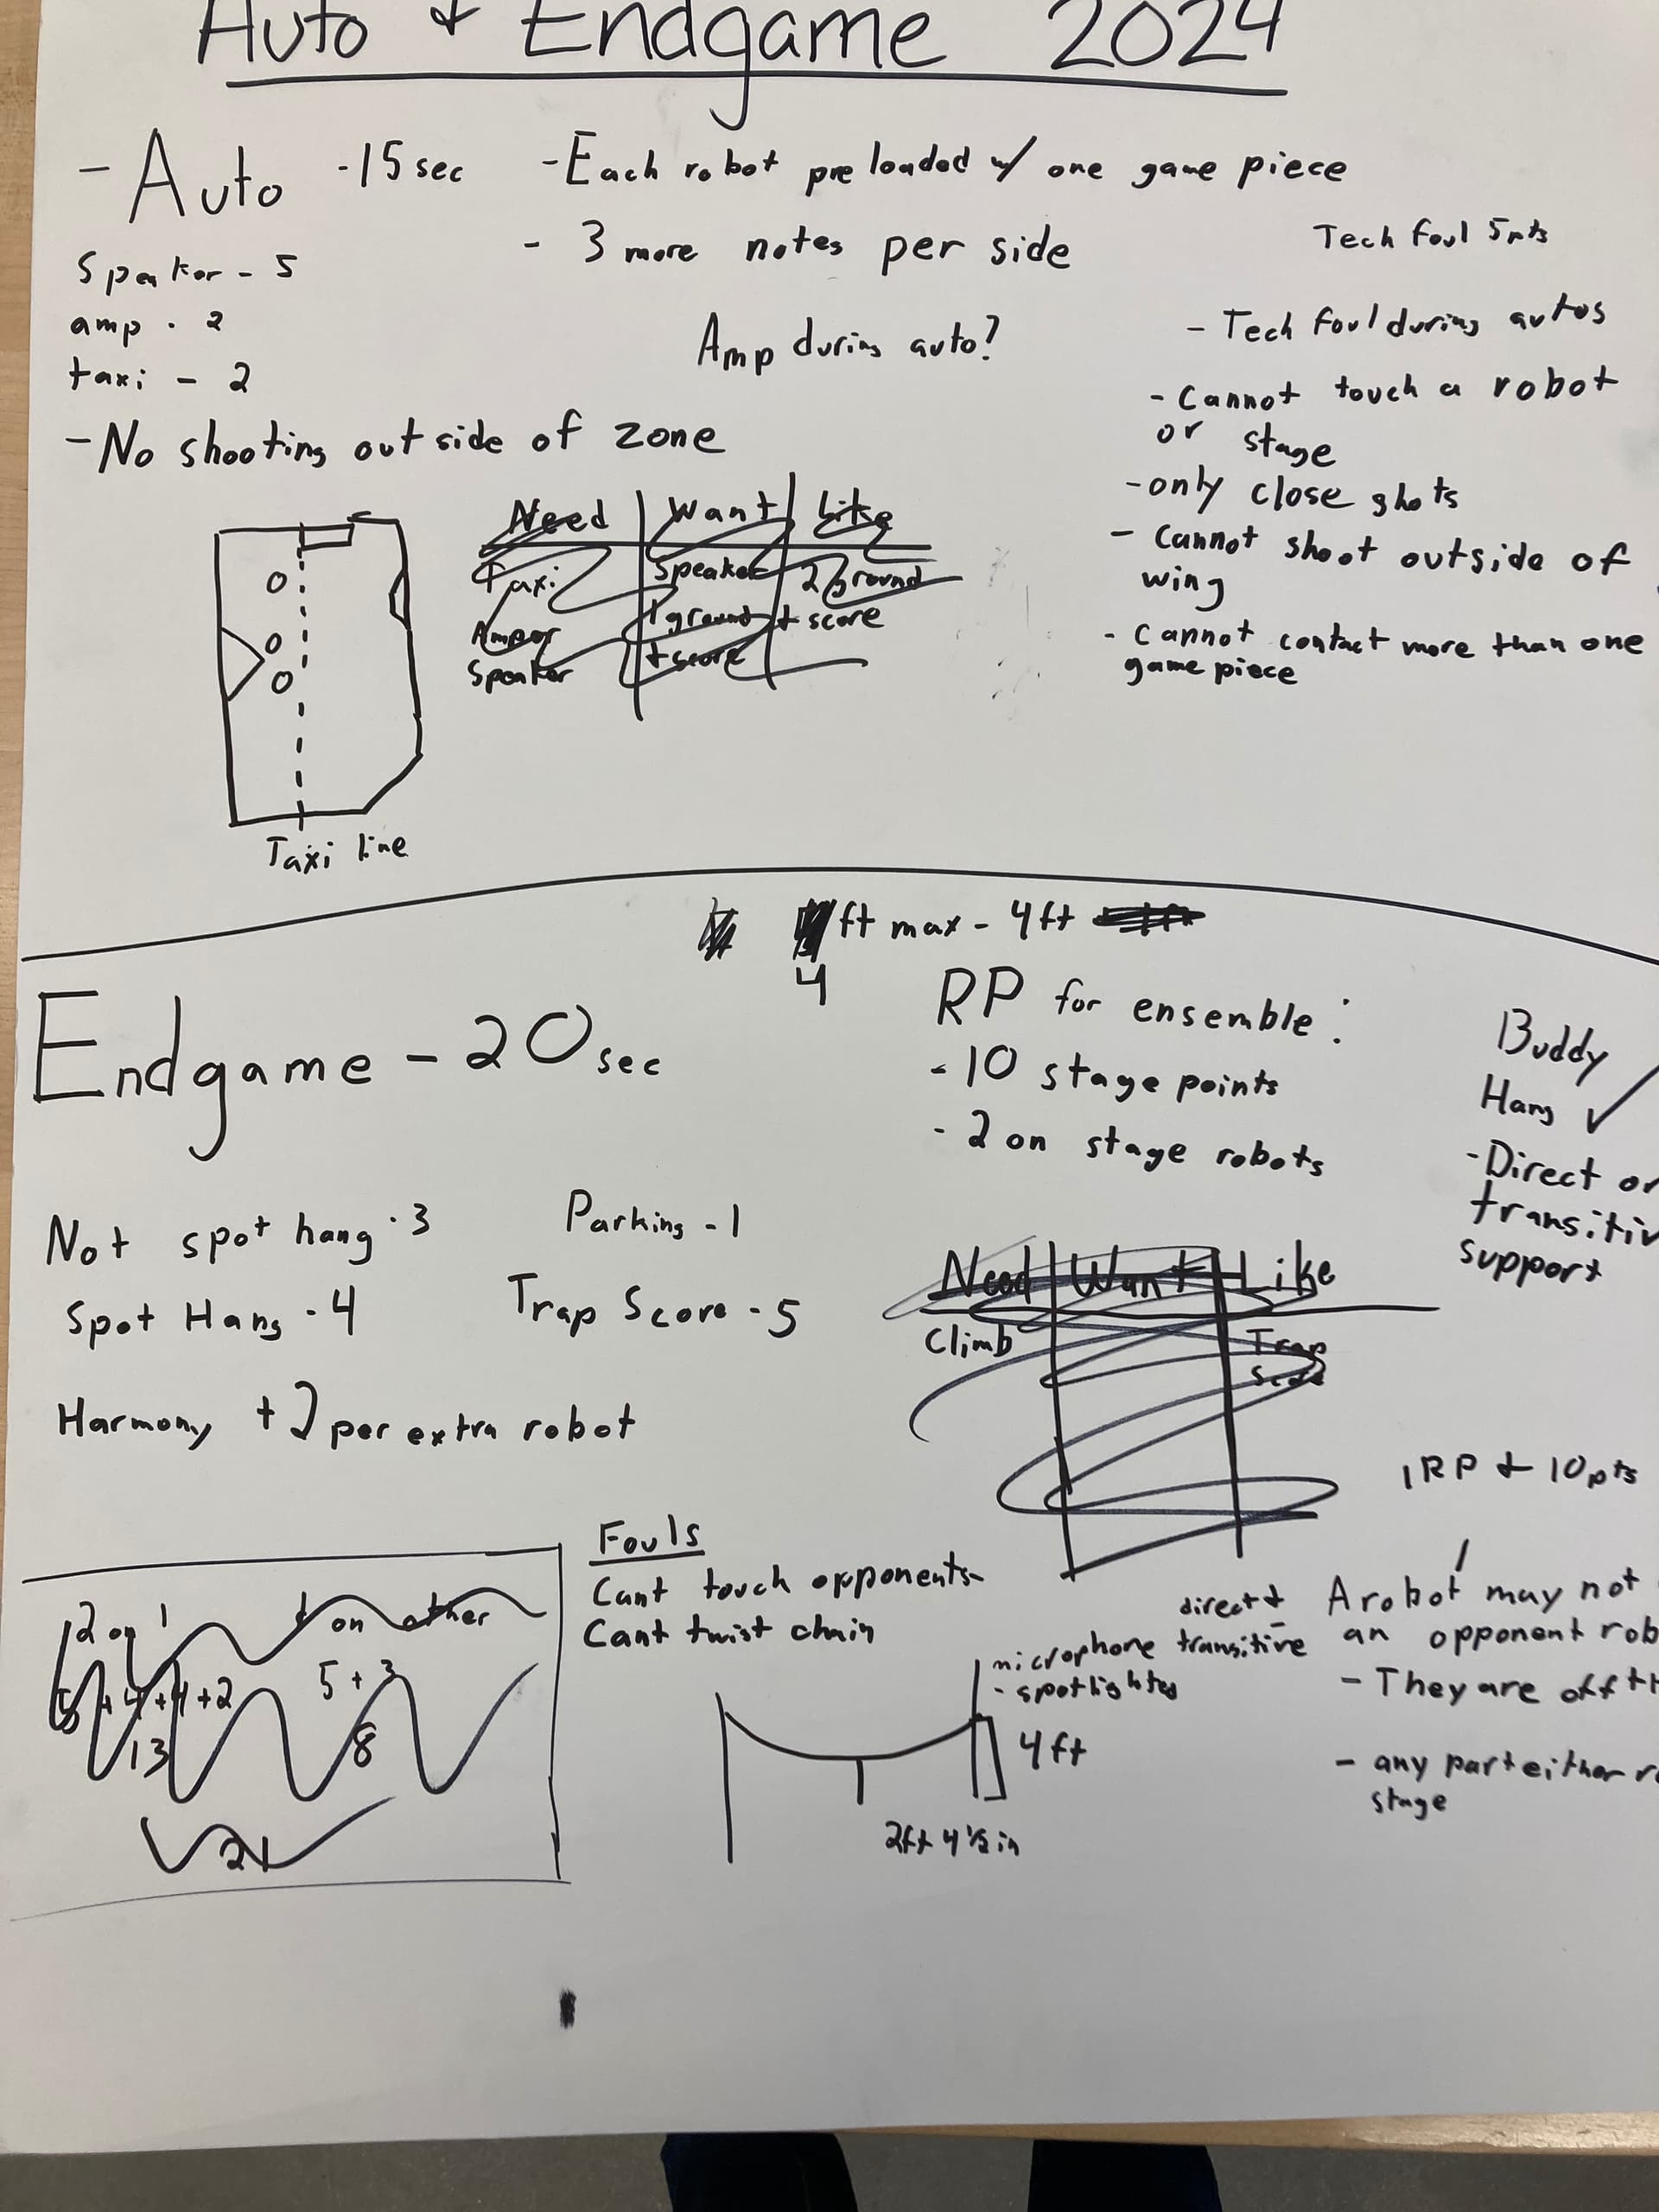 Auto & Endgame 2024
- Auto -15 sec
- Each robot preloaded w/ one game piece
- 3 more notes per side
Speaker - 5
amp - 2
taxi - 2
Amp during auto?
- No shooting outside of zone
Tech foul 5pts
- Tech foul during autos
- Cannot touch a robot
or stage
- only close shots
- Cannot shoot outside of
wing
- Cannot contact more than one
game piece
Need Want Like
Taxi Speaker 2 ground
1 ground + score
Amp or
+ score
Speaker
Taxi line
ft max - 4ft
4
Endgame - 20 sec
RP for ensemble:
- 10 stage points
- 2 on stage robots
Buddy
Hang ✓
- Direct or
transitiv
support
Not spot hang - 3
Parking - 1
Spot Hang - 4
Trap Score - 5
Harmony + 2 per extra robot
Need Want Like
Climb Trap
Score
1RP & 10pts
Fouls
Cant touch opponents
Cant twist chain
2 on 1 1 on other
5 + 4 + 4 + 2 5 + 3
13 8
21
direct &
microphone transitive
- spotlighted
4ft
2ft 4 1/2 in
A robot may not
an opponent rob
- They are off th
- any part either ro
stage